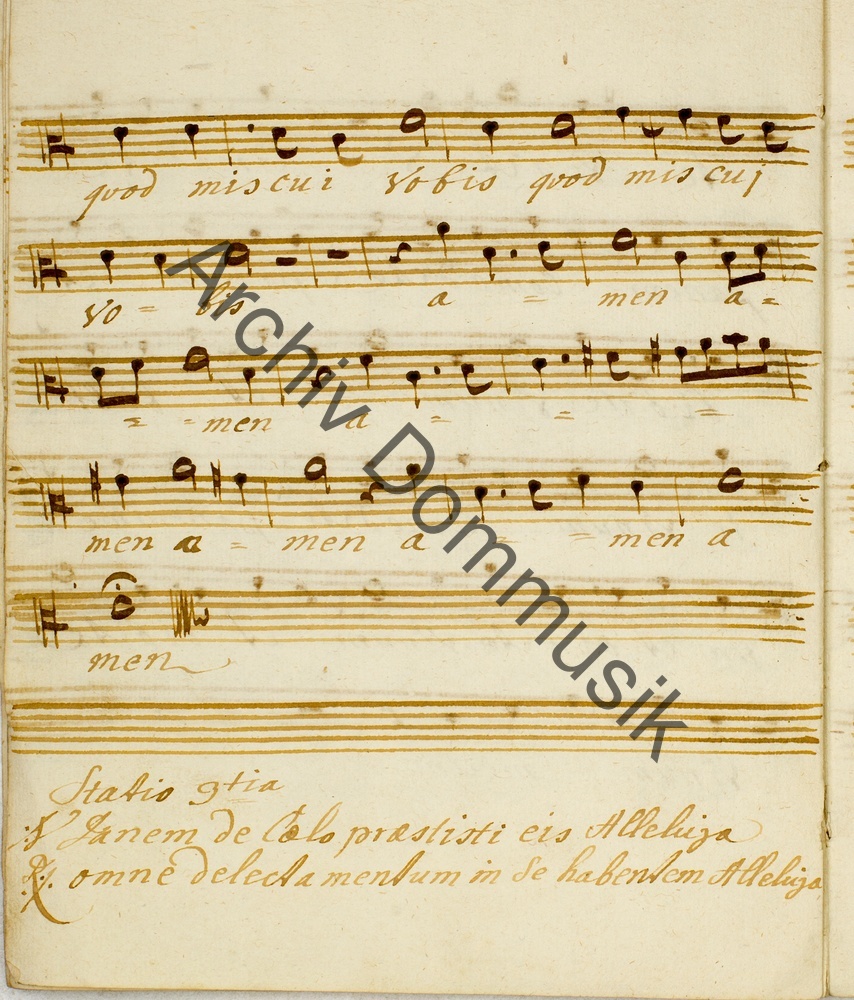 quod miscui vobis quod miscuj
vo = bis a = men a =
= = men a = = =
men a = men a = = men a
men
Statio 3tia
℣ Panem de Cælo præstisti eis Alleluja
℟. omne delectamentum in se habentem Alleluja
Archiv Dommusik